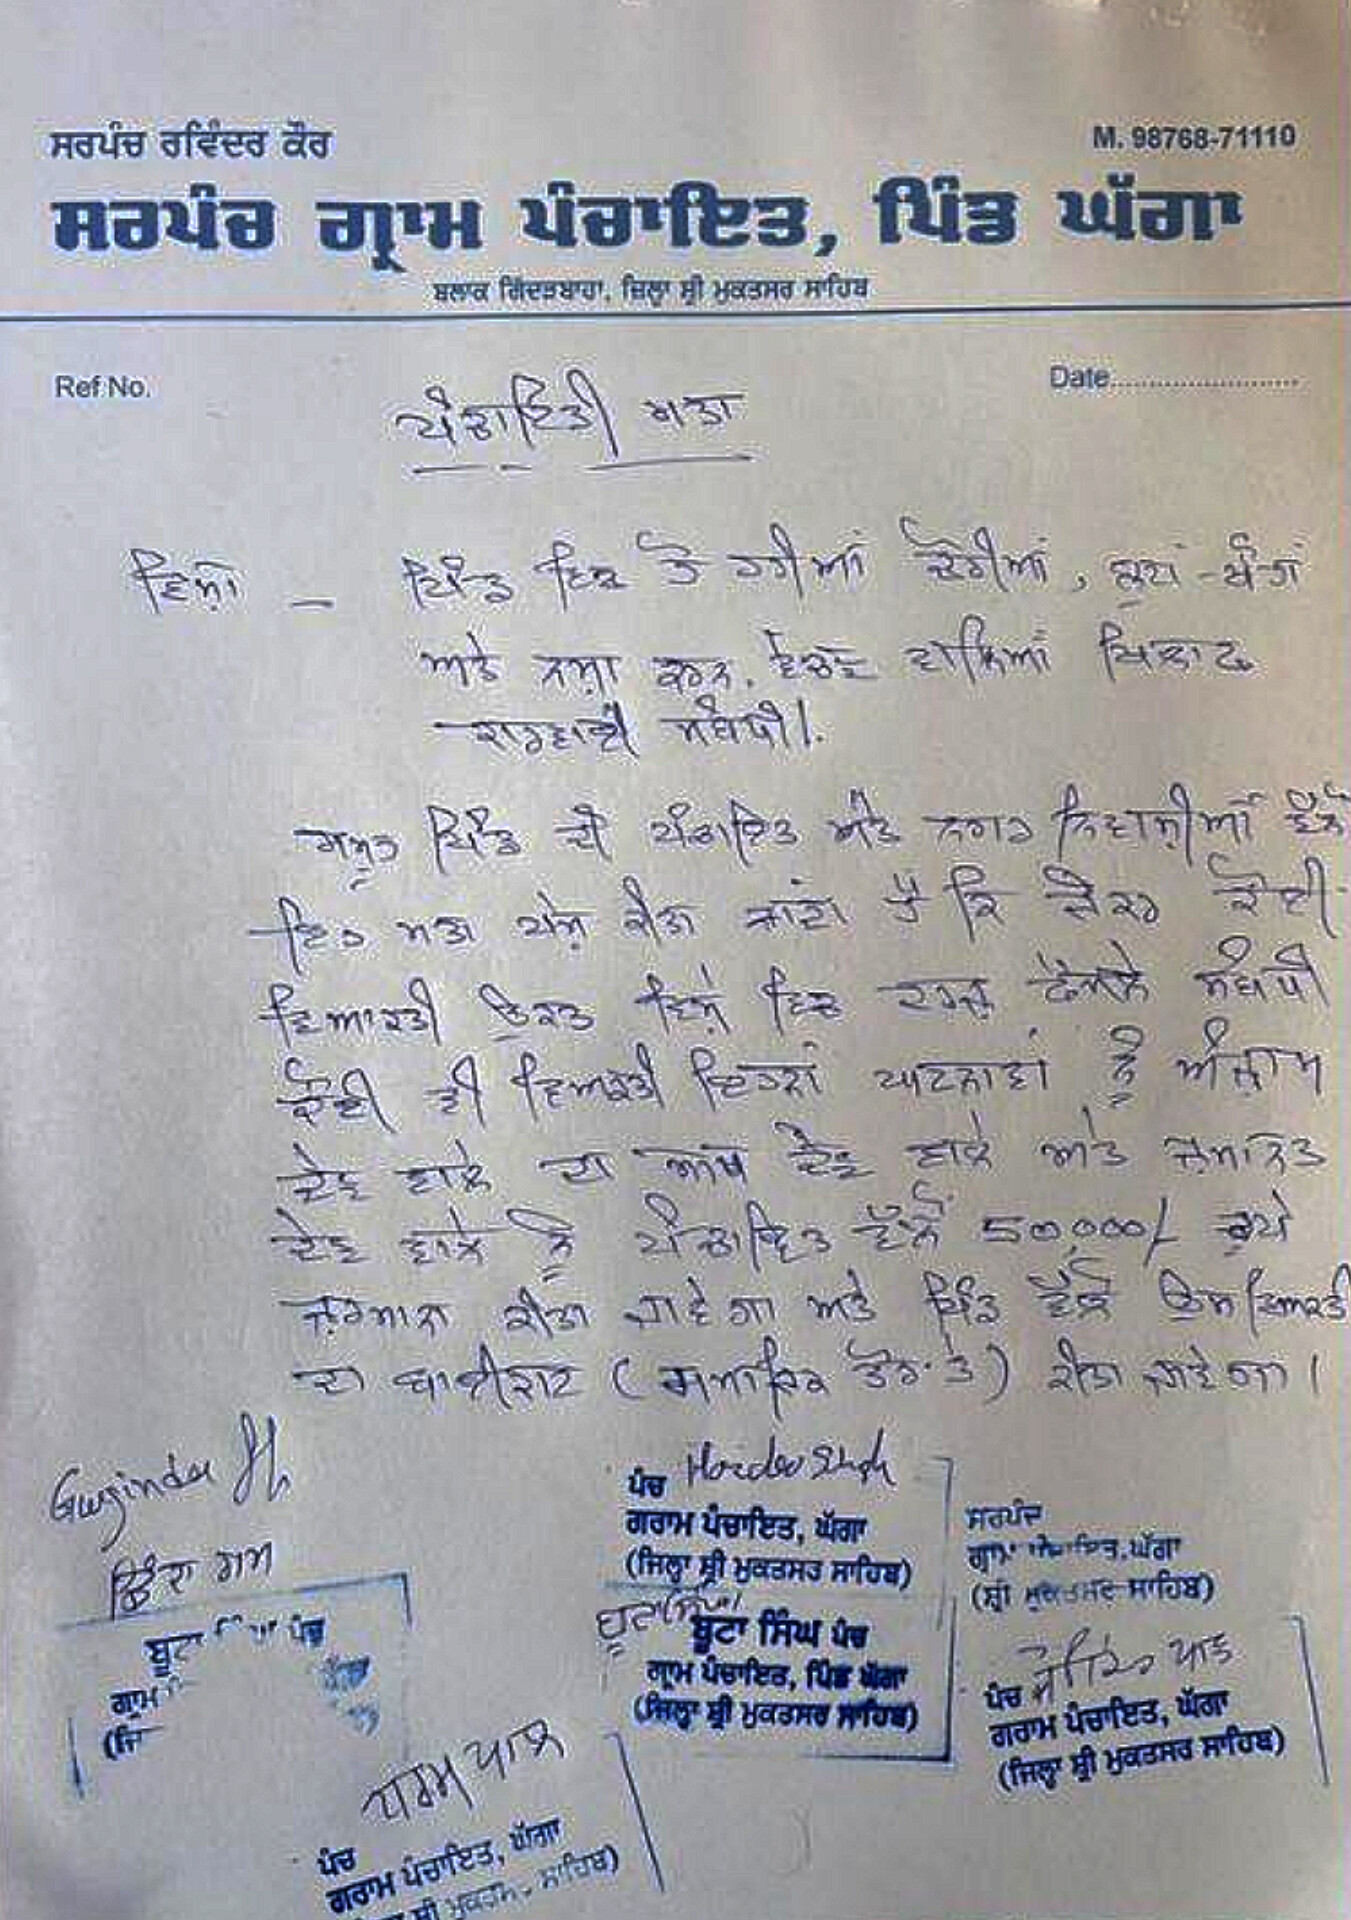 ਸਰਪੰਚ ਰਵਿੰਦਰ ਕੌਰ
M. 98768-71110
ਸਰਪੰਚ ਗ੍ਰਾਮ ਪੰਚਾਇਤ, ਪਿੰਡ ਘੱਗਾ
ਬਲਾਕ ਗਿੱਦੜਬਾਹਾ, ਜ਼ਿਲ੍ਹਾ ਸ਼੍ਰੀ ਮੁਕਤਸਰ ਸਾਹਿਬ
Ref No.
Date........................
ਪੰਚਾਇਤੀ ਮਤਾ
ਵਿਸ਼ਾ – ਪਿੰਡ ਵਿਚ ਹੋ ਰਹੀਆਂ ਚੋਰੀਆਂ,
ਅਤੇ ਨਸ਼ਾ ਕਰਨ, ਵੇਚਣ ਵਾਲਿਆਂ ਖਿਲਾਫ
ਕਾਰਵਾਈ ਸੰਬਧੀ।
ਸਮੂਹ ਪਿੰਡ ਦੀ ਪੰਚਾਇਤ ਅਤੇ ਨਗਰ ਨਿਵਾਸੀਆਂ ਵੱਲੋਂ
ਇਹ ਮਤਾ ਪੇਸ਼ ਕੀਤਾ ਜਾਂਦਾ ਹੈ ਕਿ ਜੇਕਰ ਕੋਈ
ਵਿਆਕਤੀ ਉਕਤ ਵਿਸ਼ੇ ਵਿਚ ਦਰਜ਼ ਫੈਸਲੇ ਸੰਬਧੀ
ਕੋਈ ਵੀ ਵਿਅਕਤੀ ਇਹਨਾਂ ਘਟਨਾਵਾਂ ਨੂੰ ਅੰਜ਼ਾਮ
ਦੇਣ ਵਾਲੇ ਦਾ ਸਾਥ ਦੇਣ ਵਾਲੇ ਅਤੇ ਜ਼ਮਾਨਤ
ਦੇਣ ਵਾਲੇ ਨੂੰ ਪੰਚਾਇਤ ਵੱਲੋਂ 50,000/- ਰੁਪਏ
ਜ਼ੁਰਮਾਨਾ ਕੀਤਾ ਜਾਵੇਗਾ ਅਤੇ ਪਿੰਡ ਵੱਲੋਂ ਉਸ ਵਿਅਕਤੀ
ਦਾ ਬਾਈਕਾਟ (ਸਮਾਜਿਕ ਤੌਰ ਤੇ) ਕੀਤਾ ਜਾਵੇਗਾ।
Hardev Singh
ਪੰਚ
ਗਰਾਮ ਪੰਚਾਇਤ, ਘੱਗਾ
(ਜਿਲ੍ਹਾ ਸ਼੍ਰੀ ਮੁਕਤਸਰ ਸਾਹਿਬ)
ਸਰਪੰਚ
ਗ੍ਰਾਮ ਪੰਚਾਇਤ, ਘੱਗਾ
(ਸ਼੍ਰੀ ਮੁਕਤਸਰ ਸਾਹਿਬ)
ਬੂਟਾ ਪੰਚ
ਬੂਟਾ ਸਿੰਘ
ਬੂਟਾ ਸਿੰਘ ਪੰਚ
ਗ੍ਰਾਮ ਪੰਚਾਇਤ, ਪਿੰਡ ਘੱਗਾ
(ਜਿਲ੍ਹਾ ਸ਼੍ਰੀ ਮੁਕਤਸਰ ਸਾਹਿਬ)
ਪੰਚ
ਗਰਾਮ ਪੰਚਾਇਤ, ਘੱਗਾ
(ਜਿਲ੍ਹਾ ਸ਼੍ਰੀ ਮੁਕਤਸਰ ਸਾਹਿਬ)
ਧਰਮ ਪਾਲ
ਪੰਚ
ਗਰਾਮ ਪੰਚਾਇਤ, ਘੱਗਾ
ਸ਼੍ਰੀ ਮੁਕਤਸਰ ਸਾਹਿਬ)